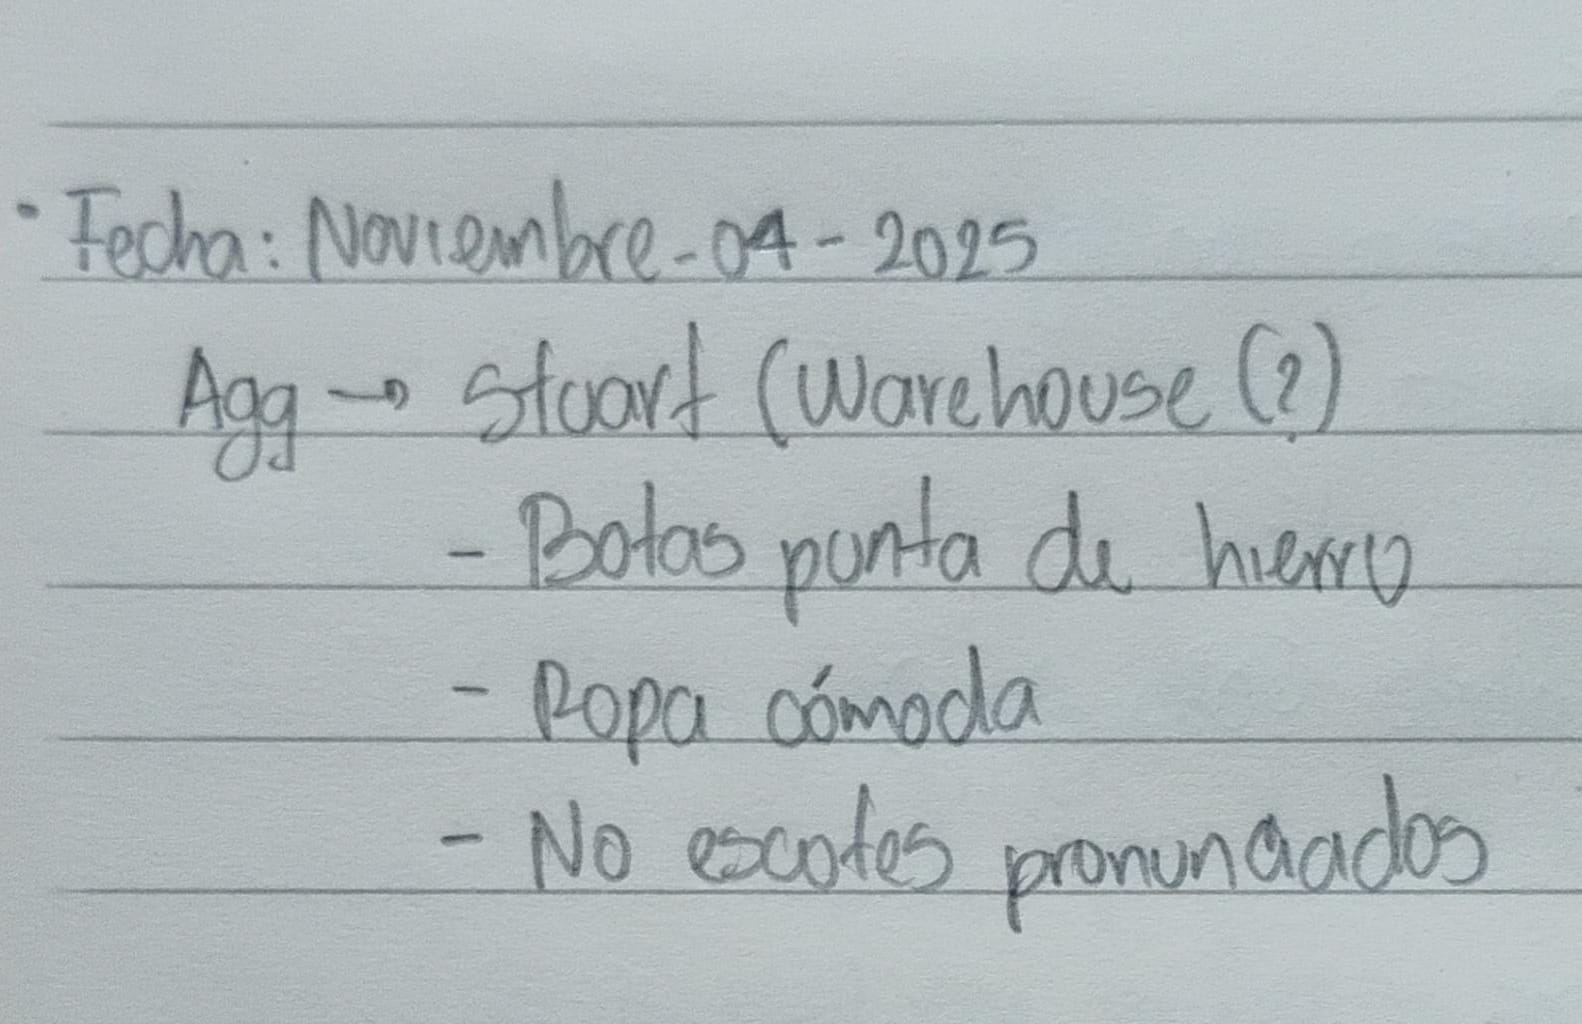 · Fecha: Noviembre-04-2025
Agg → Stuart (Warehouse (?)
- Botas punta de hierro
- Ropa cómoda
- No escotes pronunciados